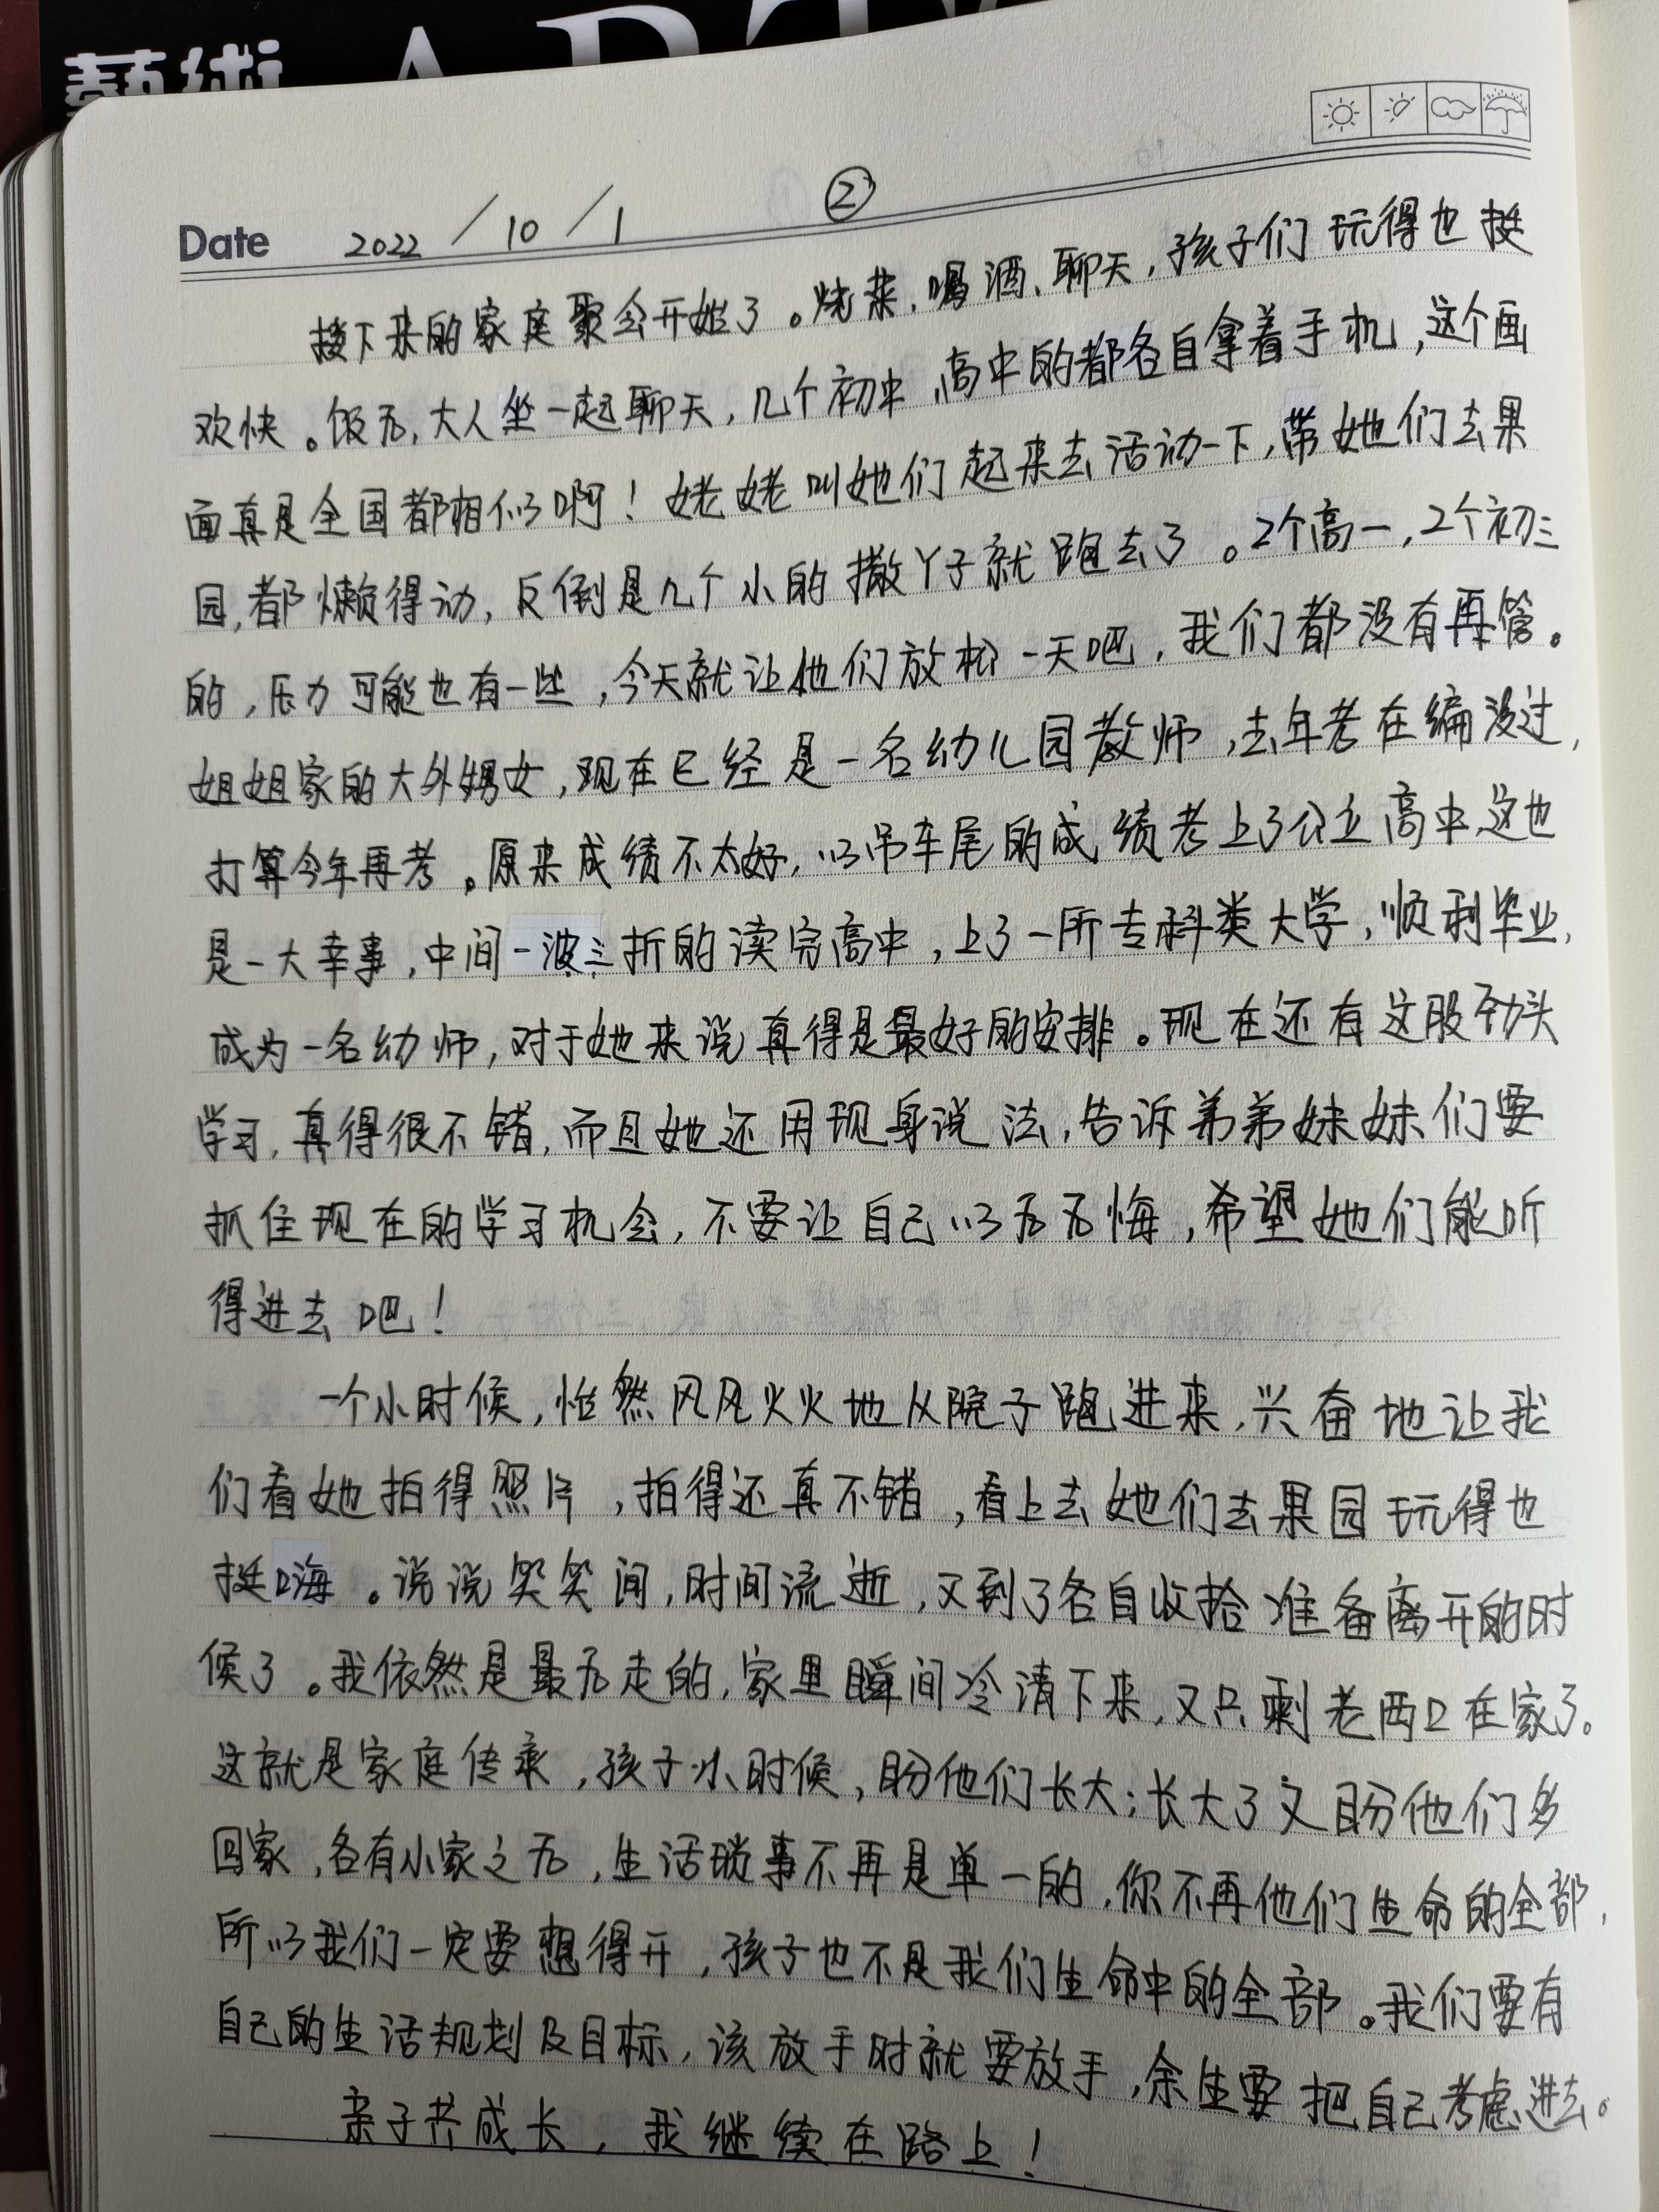 藝術 ART
Date 2022/10/1 ②
接下来的家庭聚会开始了。烧菜、喝酒、聊天，孩子们玩得也挺
欢快。饭后，大人坐一起聊天，几个初中、高中的都各自拿着手机，这个画
面真是全国都相似啊！姥姥叫她们起来去活动一下，带她们去果
园，都懒得动，反倒是几个小的撒丫子就跑去了。2个高一，2个初三
的，压力可能也有一些，今天就让他们放松一天吧，我们都没有再管。
姐姐家的大外甥女，现在已经是一名幼儿园教师，去年考在编没过，
打算今年再考。原来成绩不太好，以吊车尾的成绩考上了公立高中，这也
是一大幸事，中间一波三折的读完高中，上了一所专科类大学，顺利毕业，
成为一名幼师，对于她来说真得是最好的安排。现在还有这股劲头
学习，真得很不错，而且她还用现身说法，告诉弟弟妹妹们要
抓住现在的学习机会，不要让自己以后后悔，希望她们能听
得进去吧！
一个小时候，怡然风风火火地从院子跑进来，兴奋地让我
们看她拍得照片，拍得还真不错，看上去她们去果园玩得也
挺嗨。说说笑笑间，时间流逝，又到了各自收拾准备离开的时
候了。我依然是最后走的，家里瞬间冷清下来，又只剩老两口在家了。
这就是家庭传承，孩子小时候，盼他们长大；长大了又盼他们多
回家，各有小家之后，生活琐事不再是单一的，你不再他们生命的全部，
所以我们一定要想得开，孩子也不是我们生命中的全部。我们要有
自己的生活规划及目标，该放手时就要放手，余生要把自己考虑进去。
亲子共成长，我继续在路上！